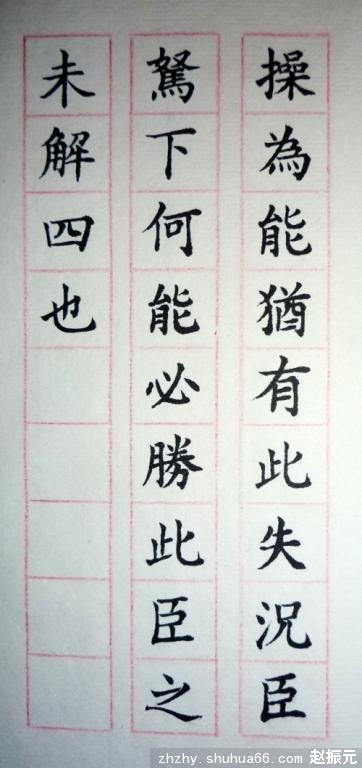 操為能猶有此失況臣
駑下何能必勝此臣之
未解四也
zhzhy.shuhua66.com 赵振元